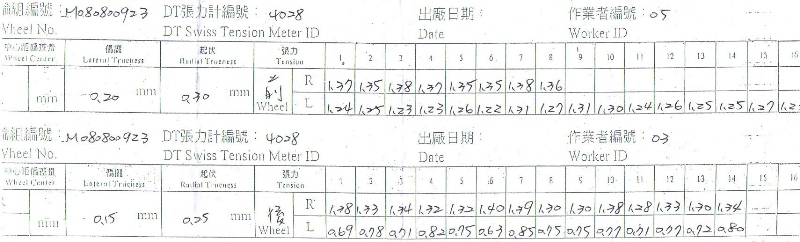 輪組編號：M080800923 DT張力計編號：4028 出廠日期： 作業者編號：05
Wheel No. DT Swiss Tension Meter ID Date Worker ID
偏擺 起伏 張力 1 2 3 4 5 6 7 8 9 10 11 12 13 14 15 16
Wheel Center Lateral Trueness Radial Trueness Tension
R 1.37 1.35 1.38 1.37 1.35 1.35 1.38 1.36
mm 0.20 mm 0.30 mm 前
Wheel L 1.24 1.25 1.23 1.23 1.26 1.22 1.31 1.27 1.31 1.30 1.24 1.26 1.25 1.25 1.27
輪組編號：M080800923 DT張力計編號：4028 出廠日期： 作業者編號：03
Wheel No. DT Swiss Tension Meter ID Date Worker ID
偏擺 起伏 張力 1 2 3 4 5 6 7 8 9 10 11 12 13 14 15 16
Wheel Center Lateral Trueness Radial Trueness Tension
R 1.38 1.33 1.34 1.32 1.32 1.40 1.39 1.30 1.30 1.38 1.28 1.33 1.30 1.34
mm 0.15 mm 0.25 mm 後
Wheel L 0.69 0.78 0.71 0.82 0.75 0.63 0.85 0.75 0.75 0.77 0.71 0.77 0.72 0.80